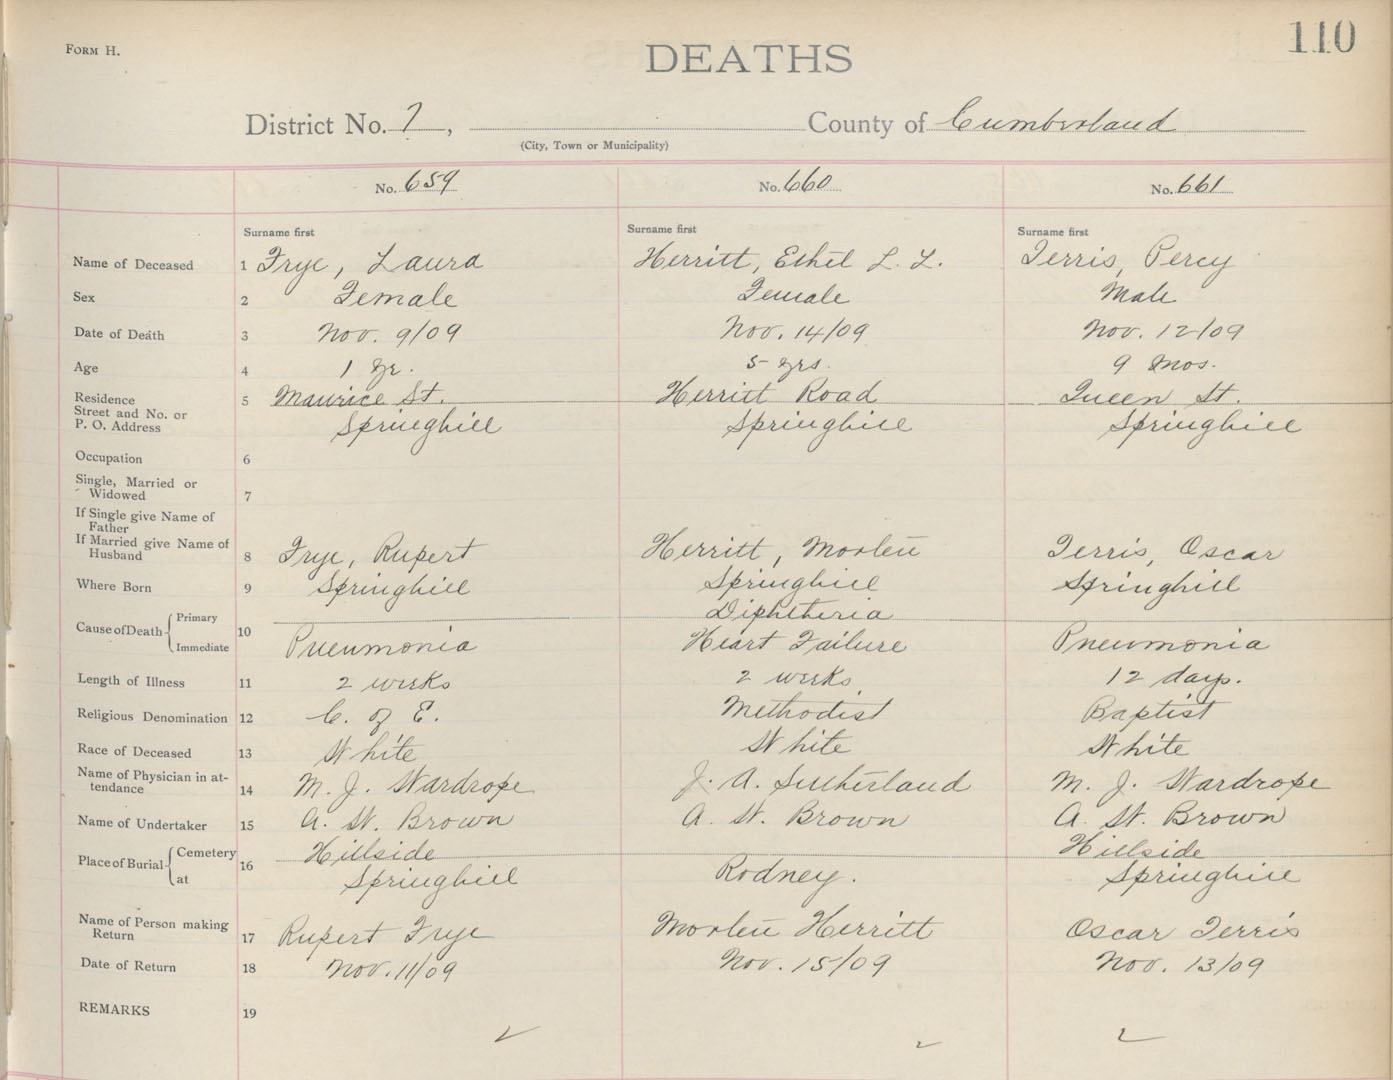 FORM H.
110
DEATHS
District No. 7, County of Cumberland
(City, Town or Municipality)
No. 659 No. 660 No. 661
Surname first Surname first Surname first
Name of Deceased 1 Frye, Laura Herritt, Ethel L. L. Terris, Percy
Sex 2 Female Female Male
Date of Death 3 Nov. 9/09 Nov. 14/09 Nov. 12/09
Age 4 1 yr. 5 yrs. 9 Mos.
Residence 5 Maurice St. Herritt Road Queen St.
Street and No. or
P. O. Address Springhill Springhill Springhill
Occupation 6
Single, Married or
Widowed 7
If Single give Name of
Father
If Married give Name of
Husband 8 Frye, Rupert Herritt, Terris, Oscar
Where Born 9 Springhill Springhill Springhill
Cause of Death Primary Diphtheria
10
Immediate Pneumonia Heart Failure Pneumonia
Length of Illness 11 2 weeks 2 weeks 12 days.
Religious Denomination 12 C. of E. Methodist Baptist
Race of Deceased 13 White White White
Name of Physician in at-
tendance 14 M. J. Wardrope J. A. Sutherland M. J. Wardrope
Name of Undertaker 15 A. W. Brown A. W. Brown A. W. Brown
Place of Burial Cemetery 16 Hillside Hillside
at Springhill Rodney. Springhill
Name of Person making
Return 17 Rupert Frye Herritt Oscar Terris
Date of Return 18 Nov. 11/09 Nov. 15/09 Nov. 13/09
REMARKS 19